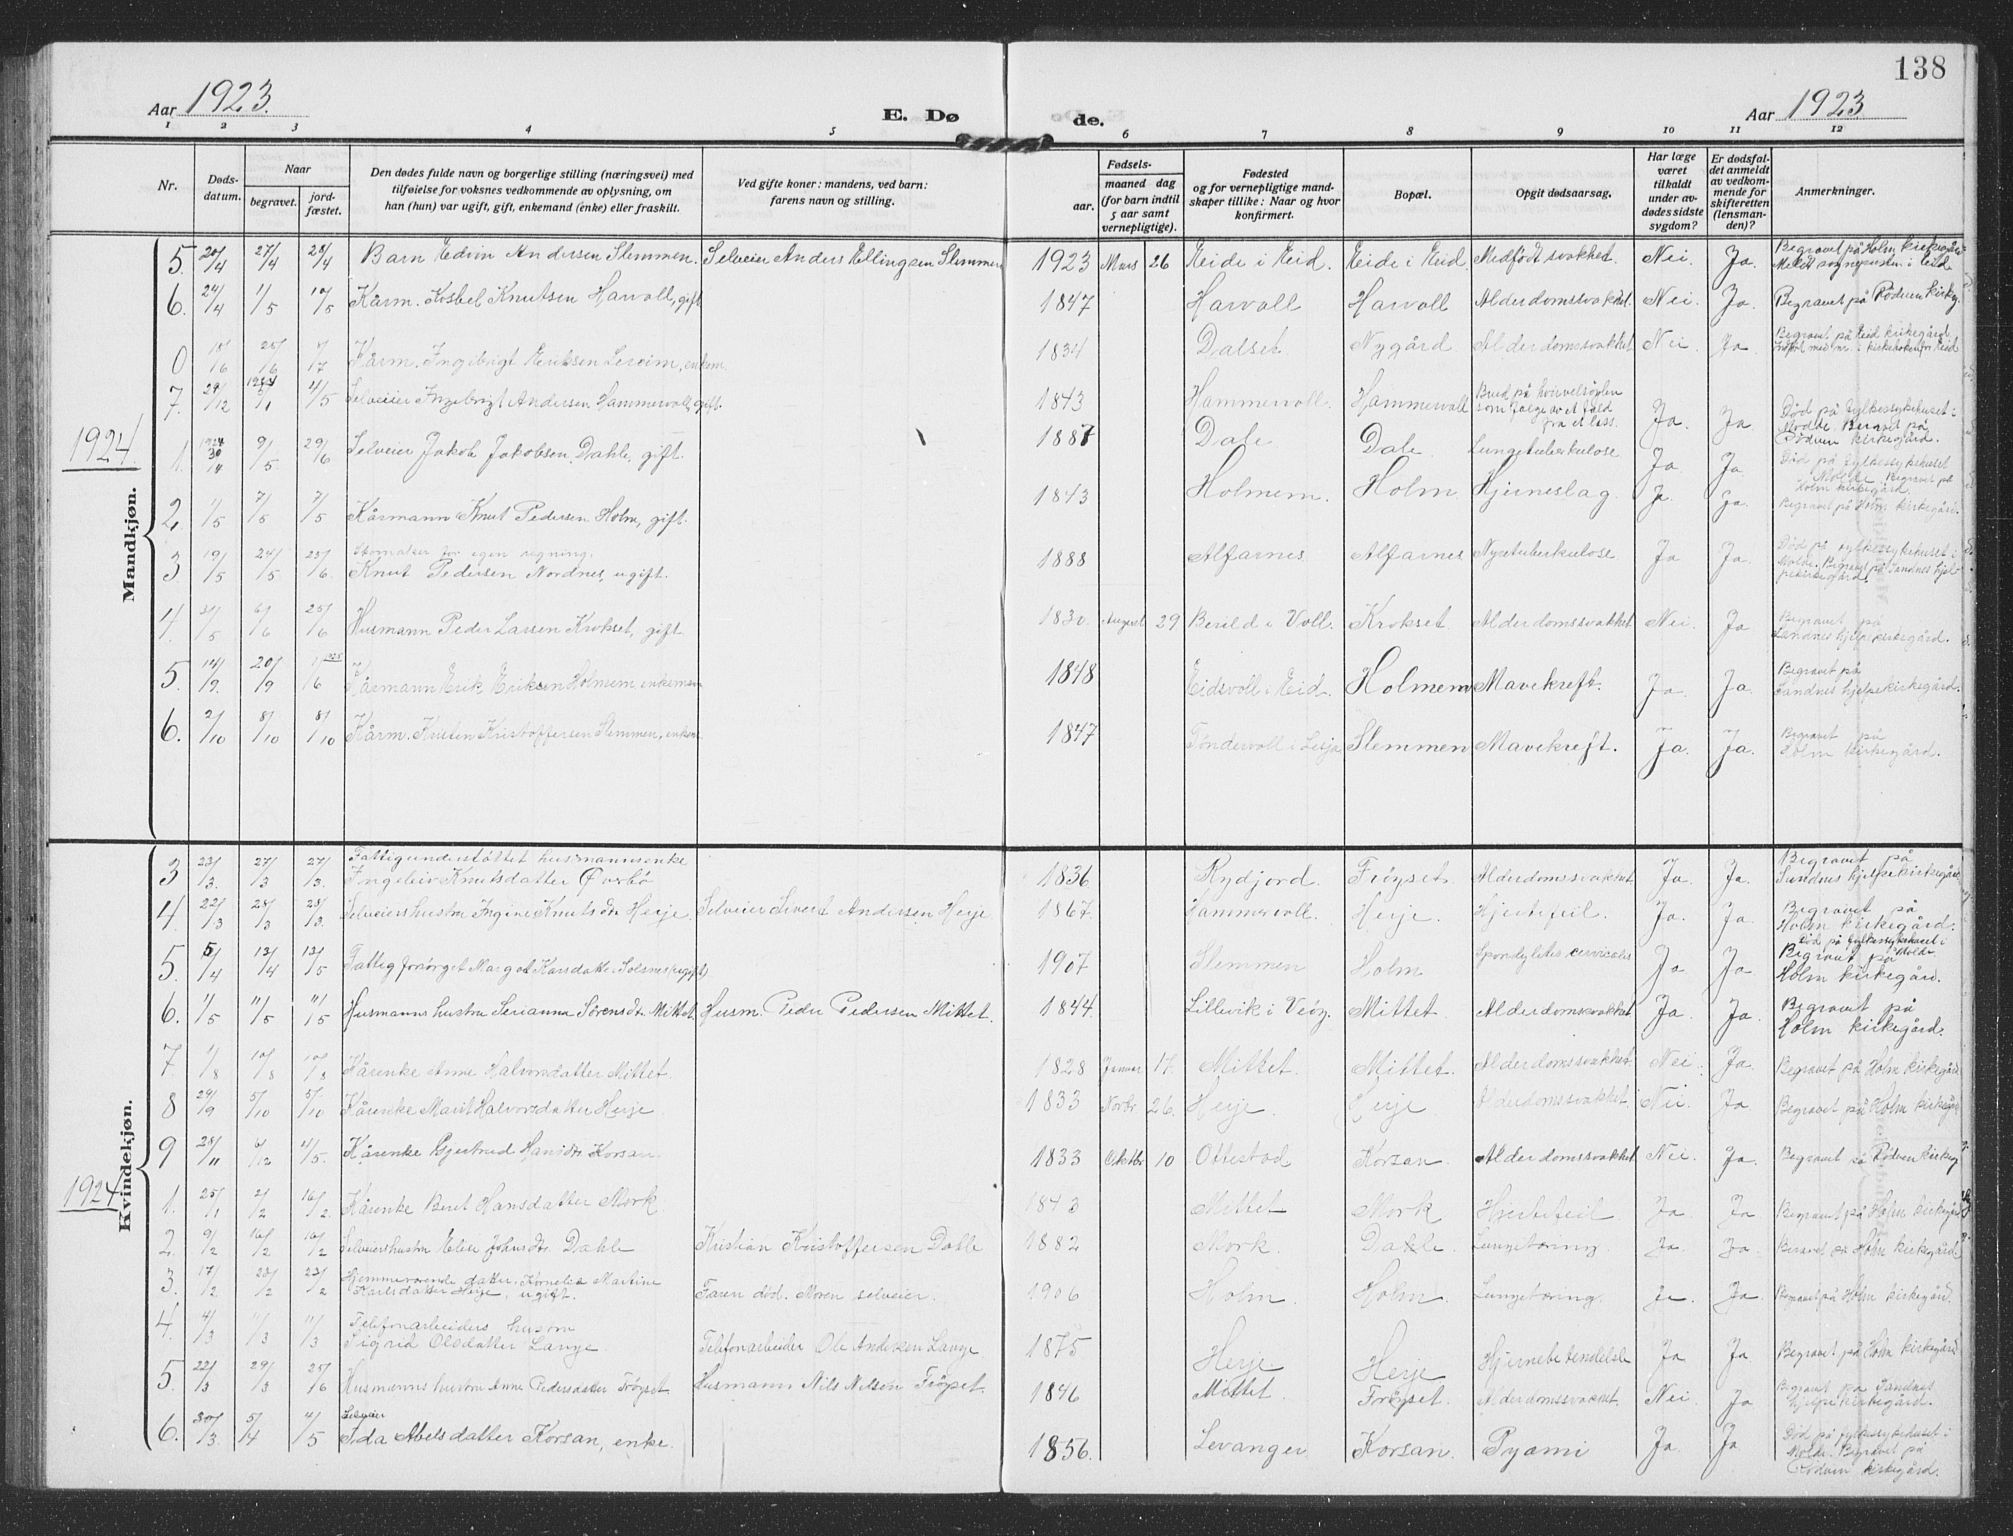 138
Aar 1923. E. Dø de. Aar 1923
1 2 3 4 5 6 7 8 9 10 11 12
Nr. Døds-datum. Naar begravet. jord-fæstet. Den dødes fulde navn og borgerlige stilling (næringsvei) med tilføielse for voksnes vedkommende av oplysning, om han (hun) var ugift, gift, enkemand (enke) eller fraskilt. Ved gifte koner: mandens, ved barn: farens navn og stilling. Fødsels- aar. maaned dag (for barn indtil 5 aar samt vernepligtige). Fødested og for vernepligtige mand-skaper tillike: Naar og hvor konfirmert. Bopæl. Opgit dødsaarsag. Har læge været tilkaldt under av-dødes sidste sygdom? Er dødsfal-det anmeldt av vedkom-mende for skifteretten (lensman-den)? Anmerkninger.
Mandkjøn.
5. 20/4 27/4 28/4 Barn Edvin Andersen Slemmen. Selveier Anders Ellingsen Slemmen 1923 Mars 26 Eide i Eid. Eide i Eid. Medfödt svakhet. Nei. Ja. Begravet på Holm kirkegård. Meldt sogneprsten i Eid
6. 24/4 1/5 10/5 Kårm. Knutsen Harvoll, gift 1847 Harvoll Harvoll Alderdomssvakhet. Nei. Ja. Begravet på Rödven kirkeg.
0 18/6 25/6 7/17 Kårm. Ingebrigt Eriksen Lereim, enkem. 1834 Dalset Nygård Alderdomssvakhet Nei. Ja Begravet på Eid kirkegård. med nr. i kirkeboken for Eid
7. 29/12 5/1 4/5 Selveier Ingebrigt Andersen Hammervoll, gift. 1843 Hammervoll. Hammervoll Brud på som følge av et fald fra et lass. Ja. Ja Död på fylkessykehuset i Molde. Begravet på Rödven kirkegård.
1924
1. 1924 30/4 9/5 29/6 Selveier Jakob Jakobsen Dahle, gift. 1887 Dale Dale. Lungetuberkulose Ja Ja Död på fylkessykehuset Molde. Begravet på Holm kirkegård.
2. 1/5 7/5 7/5 Kårmann Knut Pedersen Holm, gift. 1843 Holmem. Holm Hjerneslag. Ja. Ja. Begravet på Holm kirkegård.
3 19/5 24/5 23/6. Skomaker for egen regning. Knut Pedersen Nordnes, ugift. 1888 Alfarnes Alfarnes Nyretuberkulose Ja Ja Död på fylkessykehuset i Molde. Begravet på Sandnes hjelpekirkegård.
4. 31/5 6/6 25/6 Husmann Peder Larsen Krokset, gift 1830. August 29 Berild i Voll. Krokset Alderdomssvakhet Nei. Ja Begravet på Sandnes hjelpekirkegård.
5. 14/9. 20/9 1925 1/6 Kårmann Erik Eriksen Holmem, enkemann 1848 Eidsvoll i Eid. Holmem Mavekreft. Ja. Ja. Begravet på Sandnes hjelpekirkegård.
6. 2/10 8/10 8/10 Kårm. Kristen Kristoffersen Slemmen, enkem. 1847 Töndervoll i Lesja Slemmen Mavekreft. Ja. Ja. Begravet på Holm kirkegård.
Kvindekjøn.
3 23/3. 27/3 27/3. Fattigunderstöttet husmannsenke Ingeleiv Knutsdatter Överbö 1836 Rydjord. Fröyset. Alderdomssvakhet Ja. Ja. Begravet på Sandnes hjelpekirkegård
4. 22/3 28/3 28/3. Selveiershustru Ingine Knutsdtr Herje Selveier Sivert Andersen Herje 1867. Hammervoll. Herje. Hjertefeil. Ja. Ja. Begravet på Holm kirkegård.
5. 5/4 13/4 13/5 Fattigforsörget Margot Karsdatter Solsnes (ugift) 1907 Slemmen Holm Spondylitis cervicalis Ja Ja Död på fylkessykehuset i Molde. Begravet på Holm kirkegård.
6. 1/5 11/5 11/5 Husmannshustru Serianna Sörensdtr Mittet. Husm. Peder Pedersen Mittet. 1844. Lillevik i Veöy. Mittet. Alderdomssvakhet Ja Ja. Begravet på Holm kirkegård.
7 1/8 10/8 10/8 Kårenke Anne Halvorsdatter Mittet. 1828 Januar 17. Mittet. Mittet. Alderdomssvakhet. Nei. Ja. Begravet på Holm kirkegård
8 29/9 5/10 5/10 Kårenke Marit Halvorsdatter Herje 1833 Novbr 26. Herje. Herje Alderdomssvakhet. Nei. Ja Begravet på Holm kirkegård
9 28/11 6/12 4/5. Kårenke Gjertrud Hansdtr Korsan. 1833 Oktbr 10 Ottestad Korsan. Alderdomssvakhet Nei. Ja. Begravet på Rödven kirkeg
1924
1. 25/1 2/2 16/2. Kårenke Beret Hansdatter Mork 1843 Mittet Mork Hjertefeil Ja. Ja Begravet på Holm kirkegård
2. 9/2 16/2 16/2 Selveiershustru Elise Johnsdtr. Dahle Kristian Kristoffersen Dahle 1882 Mork Dahle. Lungetæring. Ja. Ja. Begravet på Holm kirkegård
3. 17/2 23/2 23/2 Hjemmeværende datter Kornelia Martine Karlsdatter Herje, ugift. Faren död. Moren selveier. 1906 Holm. Holm. Lungetæring. Ja. Ja. Begravet på Holm kirkegård.
4. 4/3 11/3 11/3 Telefonarbeiders husmor Sigrid Olsdatter Lange. Telefonarbeider Ole Andersen Lange 1875 Herje Herje Hjernebetendelse Ja Ja. Begravet på Holm kirkegård
5. 22/3 29/3 25/6 Husmannshustru Anne Pedersdatter Fröyset Husmann Nils Nilsen Fröyset. 1846 Mittet Fröyset. Alderdomssvakhet. Nei. Ja Begravet på Sandnes hjelpekirkegård.
6. 30/3. 5/4 4/5 Selveier Ida Abelsdatter Korsan, enke. 1856. Levanger Korsan. Pyami Ja. Ja Död på fylkessykehuset i Molde. Begravet på Rödven kirkegård.